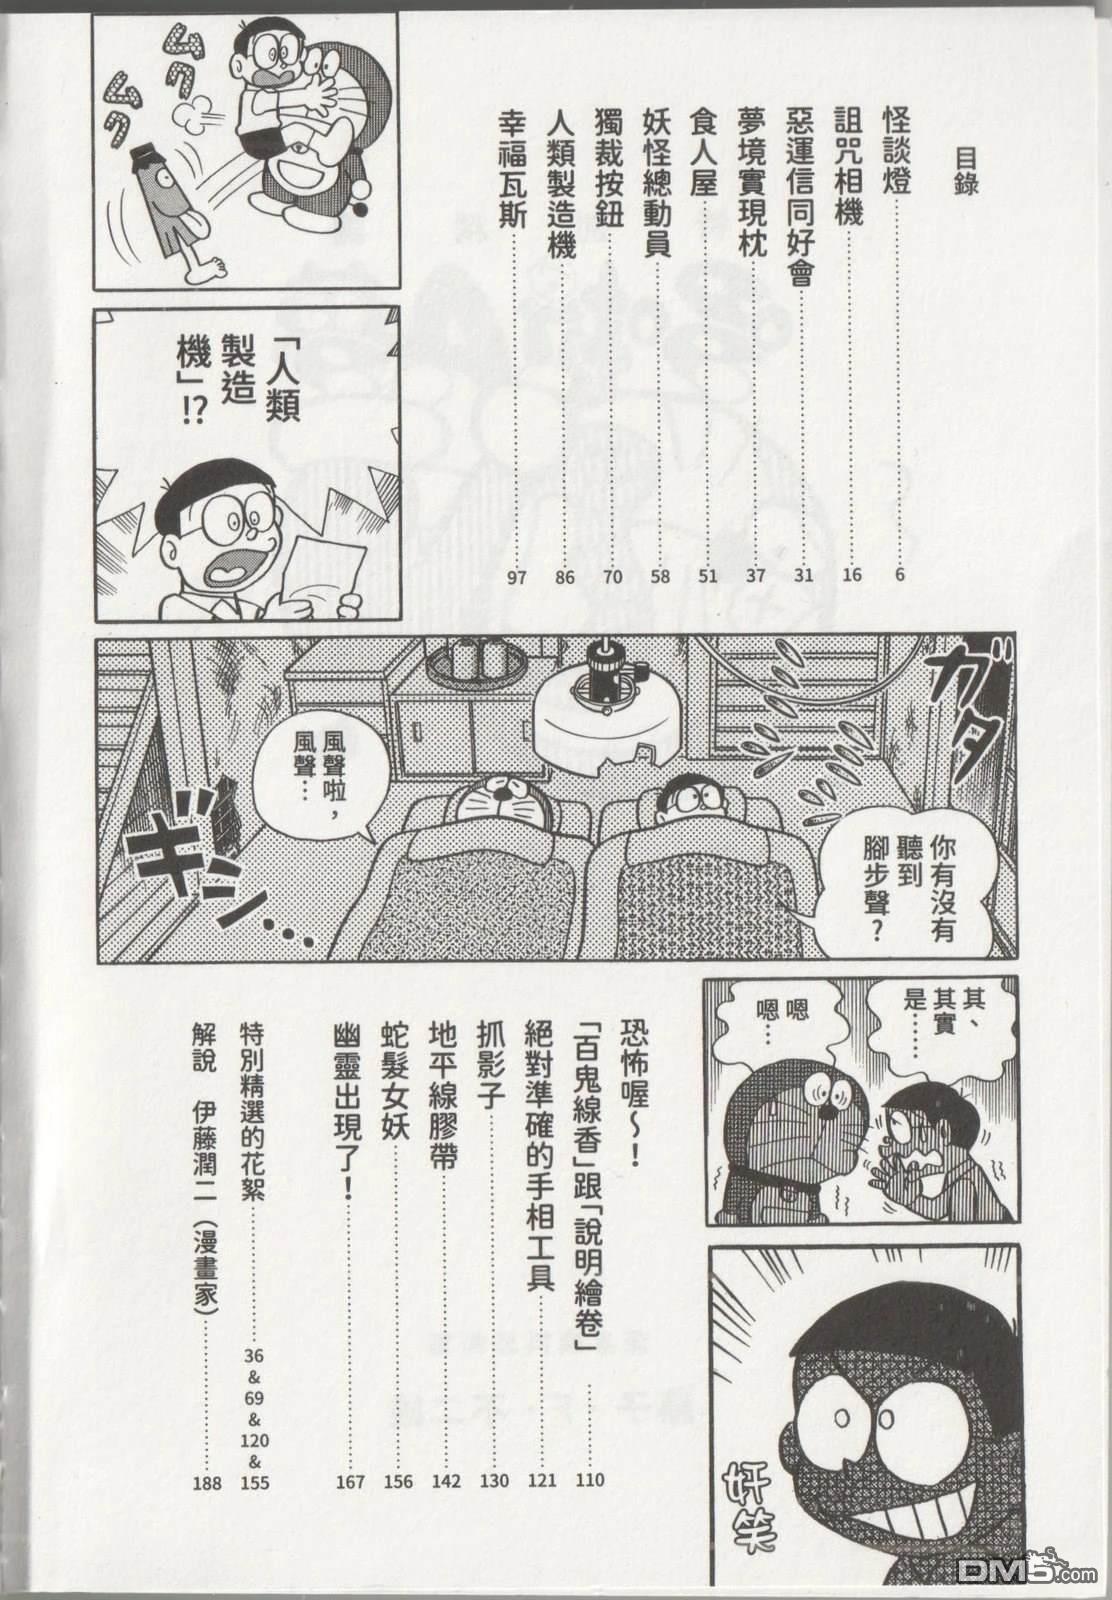 目錄
怪談燈 6
詛咒相機 16
惡運信同好會 31
夢境實現枕 37
食人屋 51
妖怪總動員 58
獨裁按鈕 70
人類製造機 86
幸福瓦斯 97
ムク
ムク
「人類
製造
機」!?
ガタ
你有沒有
聽到
腳步聲?
風聲啦,
風聲…
ギシ…
其、
其實
是……
嗯
嗯…
奸笑
恐怖喔～!
「百鬼線香」跟「說明繪卷」 110
絕對準確的手相工具 121
抓影子 130
地平線膠帶 142
蛇髮女妖 156
幽靈出現了! 167
特別精選的花絮 36 & 69 & 120 & 155
解說 伊藤潤二(漫畫家) 188
DM5.com